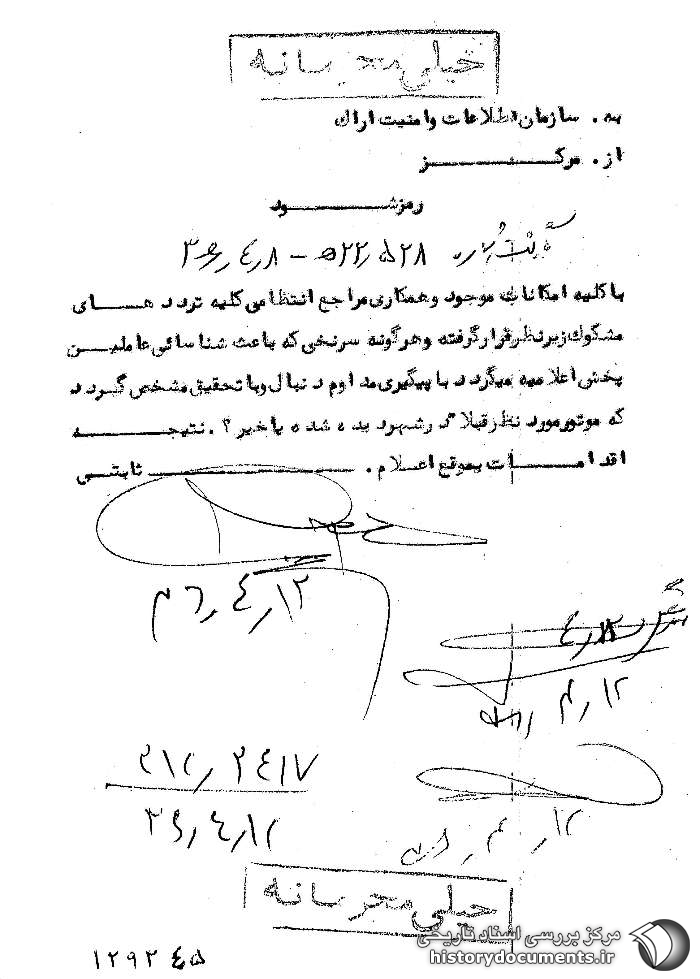 خیلی محرمانه
به . سازمان اطلاعات و امنیت اراک
از . مرکز
رمز شود
۵۲۲٫۵۲۸ – ۳۶٫۴٫۸
با کلیه امکانات موجود و همکاری مراجع انتظامی کلیه تردد های
مشکوک زیر نظر قرار گرفته و هر گونه سرنخی که باعث شناسائی عاملین
پخش اعلامیه میگردد با پیگیری مداوم دنبال و با تحقیق مشخص گردد
که موتور مورد نظر قبلا در شهر دیده شده یا خیر ؟ . نتیجه
اقدامات بموقع اعلام . ثابتی
۲۱۲٫۲۴۱۷
۳۶٫۴٫۱۲
خیلی محرمانه
مرکز بررسی اسناد تاریخی
historydocuments.ir
۱۲۹۲۴۵